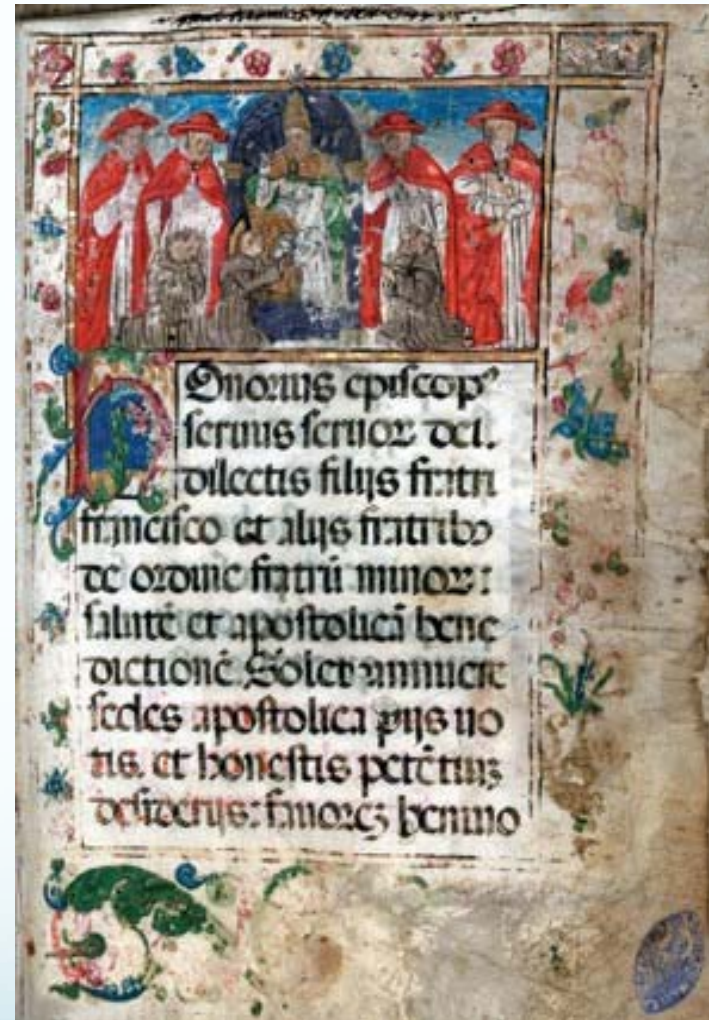 Honorius episcopꝰ
seruus seruoꝝ dei.
dilectis filijs fratri
francisco et alijs fratribꝰ
de ordine fratrū minoꝝ:
salutē et apostolicā bene
dictionē. Solet annuere
sedes apostolica pijs uo
tis. et honestis petētiuꝫ
desiderijs: fauoreꝫ beniuo